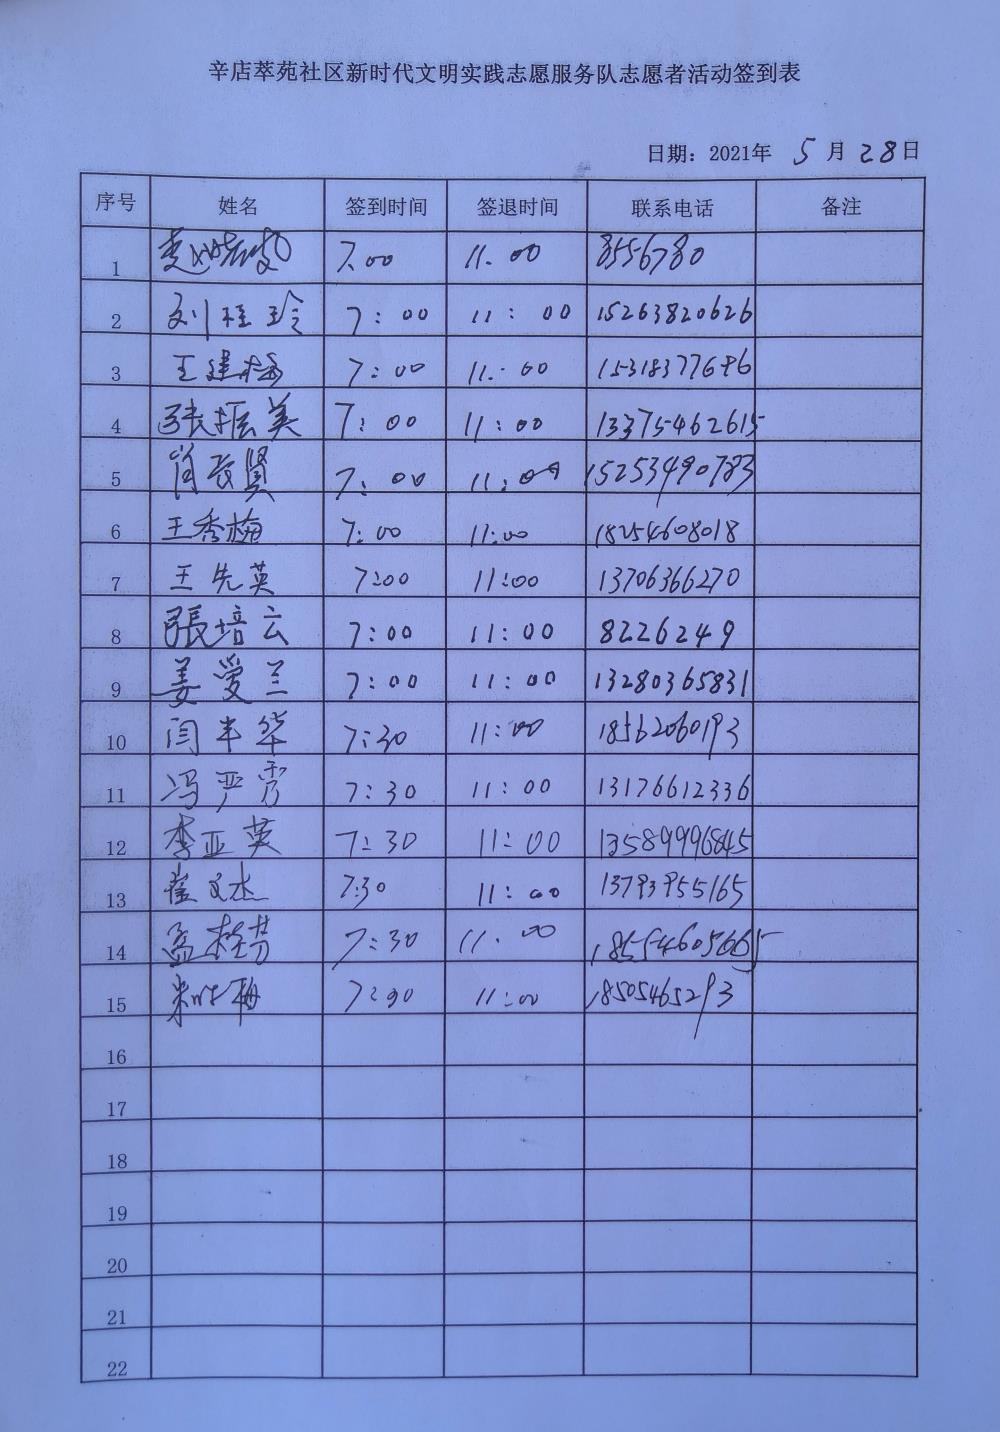 辛店萃苑社区新时代文明实践志愿服务队志愿者活动签到表
日期：2021年 5 月 28 日
序号 姓名 签到时间 签退时间 联系电话 备注
1 7.00 11.00 8556780
2 刘桂玲 7:00 11:00 15263820626
3 王建梅 7:00 11:00 15318377696
4 张振美 7:00 11:00 13375462615
5 肖长贤 7:00 11:00 15253490783
6 王秀梅 7:00 11:00 18254608018
7 王先英 7:00 11:00 13706366270
8 張培云 7:00 11:00 8226249
9 姜爱兰 7:00 11:00 13280365831
10 闫丰华 7:30 11:00 18562060193
11 冯严秀 7:30 11:00 13176612336
12 李亚英 7:30 11:00 13589996845
13 崔文杰 7:30 11:00 13793955165
14 孟桂芳 7:30 11.00 18554605665
15 7:30 11:00 18505465293
16
17
18
19
20
21
22